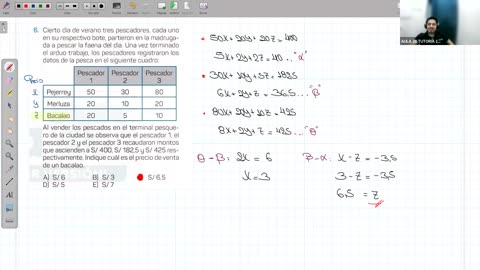 6. Cierto día de verano tres pescadores, cada uno
en su respectivo bote, partieron en la madruga-
da a pescar la faena del día. Una vez terminado
el arduo trabajo, los pescadores registraron los
datos de la pesca en el siguiente cuadro:
Pescador 1 Pescador 2 Pescador 3
x Pejerrey 50 30 80
y Merluza 20 10 20
z Bacalao 20 5 10
Al vender los pescados en el terminal pesque-
ro de la ciudad se observa que el pescador 1, el
pescador 2 y el pescador 3 recaudaron montos
que ascienden a S/ 400, S/ 182,5 y S/ 425 res-
pectivamente. Indique cuál es el precio de venta
de un bacalao.
A) S/ 6 B) S/ 3 S/ 6,5
D) S/ 5 E) S/ 7
50x+20y+20z=400
5x+2y+2z=40..."α"
30x+10y+5z=182.5
6x+2y+z=36.5..."β"
80x+20y+10z=425
8x+2y+z=42.5..."θ"
θ-β: 2x=6
x=3
β-α: x-z=-3,5
3-z=-3,5
6,5=z